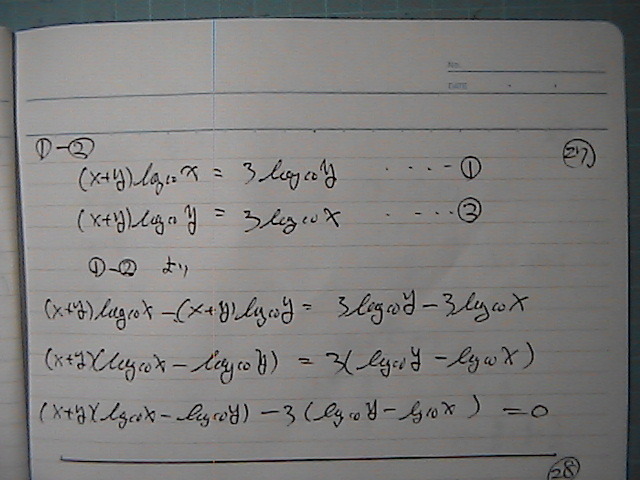 No.
DATE
①-② ㉗
(x+y)log₁₀x = 3log₁₀y ····-①
(x+y)log₁₀y = 3log₁₀x ····②
①-② より
(x+y)log₁₀x-(x+y)log₁₀y = 3log₁₀y-3log₁₀x
(x+y)(log₁₀x-log₁₀y) = 3(log₁₀y-log₁₀x)
(x+y)(log₁₀x-log₁₀y)-3(log₁₀y-log₁₀x) =0
㉘